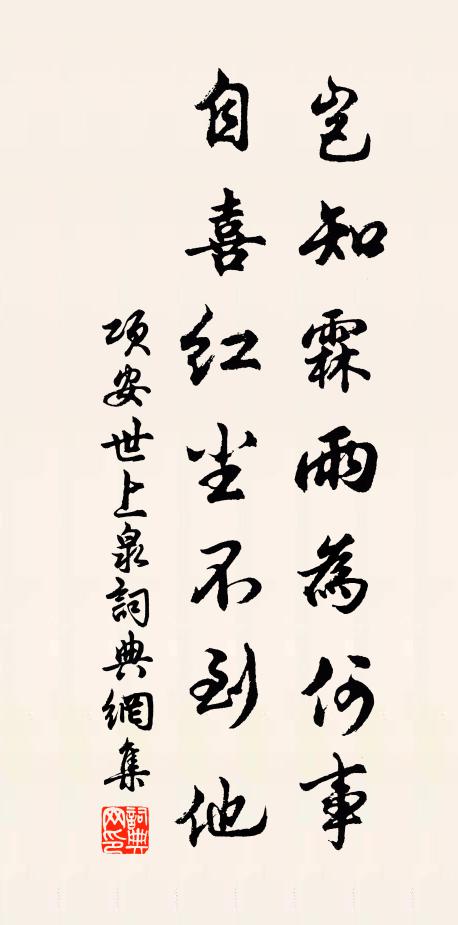 岂知霖雨為何事
自喜红尘不到他
项安世上泉詞典網集
詞典网印